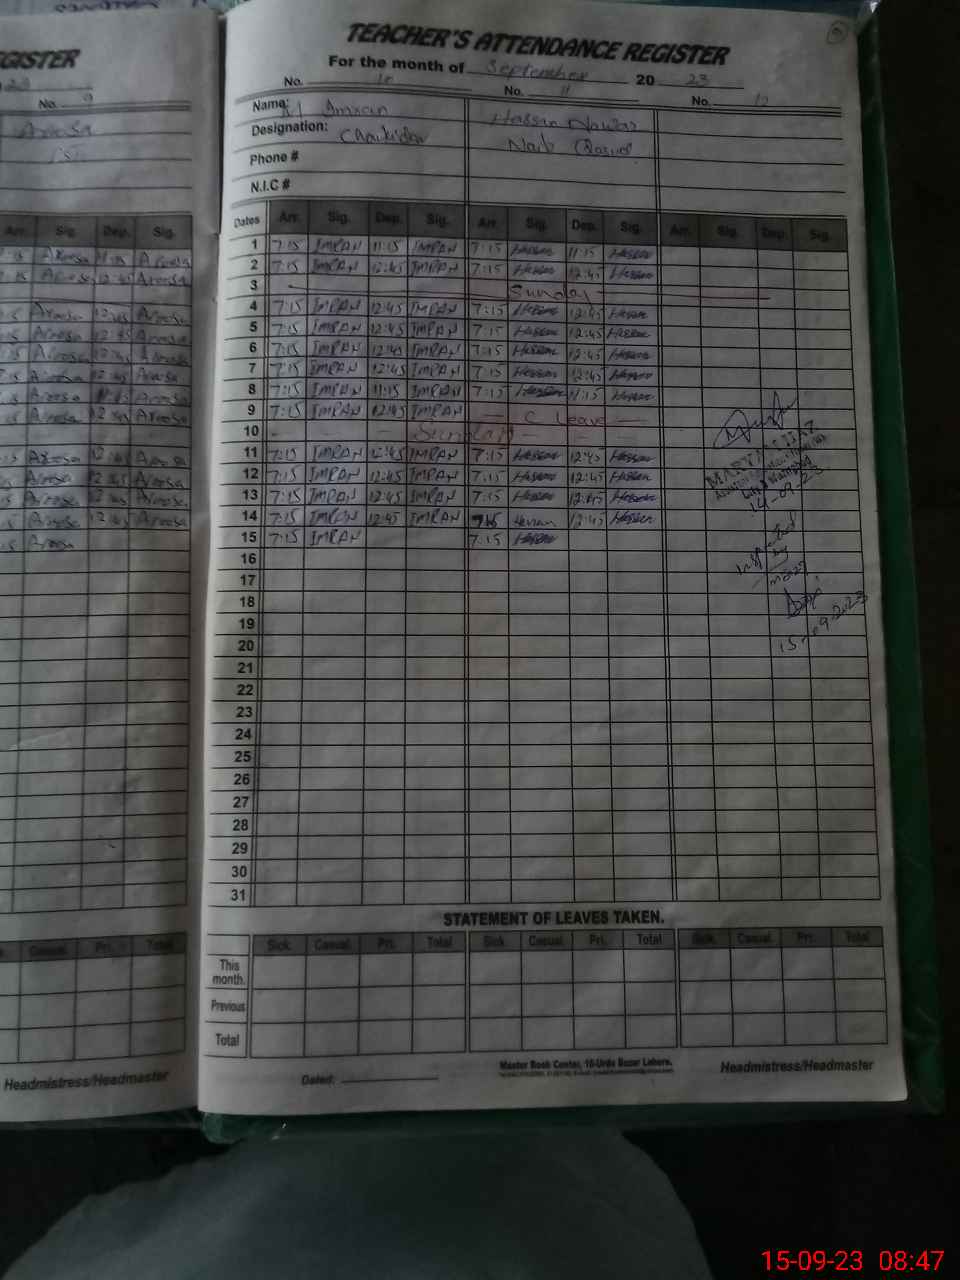 TEACHER'S ATTENDANCE REGISTER
For the month of September 20 23
No. 10 No. 11 No. 12
Name: M Imran Hassan Nawaz
Designation: Chaukidar Naib Qasid
Phone #
N.I.C #
Dates Arr. Sig. Dep. Sig. Arr. Sig. Dep. Sig. Arr. Sig. Dep. Sig.
1 7:15 IMRAN 11:15 IMRAN 7:15 Hassan 11:15 Hassan
2 7:15 IMRAN 12:45 IMRAN 7:15 Hassan 12:45 Hassan
3 Sunday
4 7:15 IMRAN 12:45 IMRAN 7:15 Hassan 12:45 Hassan
5 7:15 IMRAN 12:45 IMRAN 7:15 Hassan 12:45 Hassan
6 7:15 IMRAN 12:45 IMRAN 7:15 Hassan 12:45 Hassan
7 7:15 IMRAN 12:45 IMRAN 7:15 Hassan 12:45 Hassan
8 7:15 IMRAN 11:15 IMRAN 7:15 Hassan 11:15 Hassan
9 7:15 IMRAN 12:45 IMRAN C Leave
10 Sunday
11 7:15 IMRAN 12:45 IMRAN 7:15 Hassan 12:45 Hassan
12 7:15 IMRAN 12:45 IMRAN 7:15 Hassan 12:45 Hassan
13 7:15 IMRAN 12:45 IMRAN 7:15 Hassan 12:45 Hassan
14 7:15 IMRAN 12:45 IMRAN 7:15 Hassan 12:45 Hassan
15 7:15 IMRAN 7:15 Hassan
16
17
18
19
20
21
22
23
24
25
26
27
28
29
30
31
14-09-23
Inspected
by
15-09-2023
STATEMENT OF LEAVES TAKEN.
Sick. Casual. Pri. Total Sick. Casual. Pri. Total Sick. Casual. Pri. Total
This month.
Previous
Total
Dated:
Master Book Center, 10-Urdu Bazar Lahore.
Headmistress/Headmaster
GISTER
No. 9
Aroosa
Arr. Sig. Dep. Sig.
Casual. Pri. Total
Headmistress/Headmaster
15-09-23 08:47